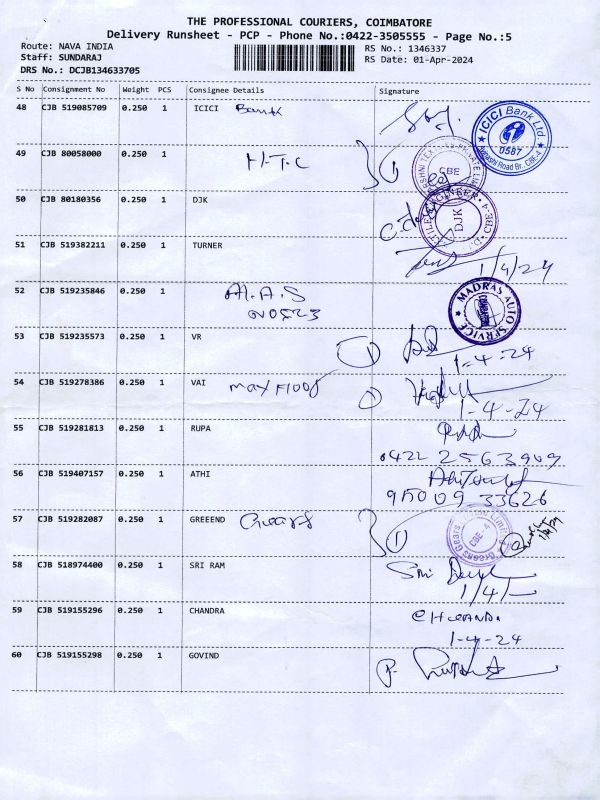 THE PROFESSIONAL COURIERS, COIMBATORE
Delivery Runsheet - PCP - Phone No.:0422-3505555 - Page No.:5
Route: NAVA INDIA
Staff: SUNDARAJ
DRS No.: DCJB134633705
RS No.: 1346337
RS Date: 01-Apr-2024
S No Consignment No Weight PCS Consignee Details Signature
48 CJB 519085709 0.250 1 ICICI Bank
ICICI Bank Ltd.
0587
49 CJB 80058000 0.250 1
CBE
50 CJB 80180356 0.250 1 DJK
DJK
51 CJB 519382211 0.250 1 TURNER
1/4/24
52 CJB 519235846 0.250 1 M.A.S
MADRAS AUTO SERVICE
53 CJB 519235573 0.250 1 VR
1-4-24
54 CJB 519278386 0.250 1 VAI max Floor
1-4-24
55 CJB 519281813 0.250 1 RUPA
0422 2563909
56 CJB 519407157 0.250 1 ATHI
95009 33626
57 CJB 519282087 0.250 1 GREEEND Gears
CBE-4
58 CJB 518974400 0.250 1 SRI RAM
1/4/
59 CJB 519155296 0.250 1 CHANDRA
1-4-24
60 CJB 519155298 0.250 1 GOVIND